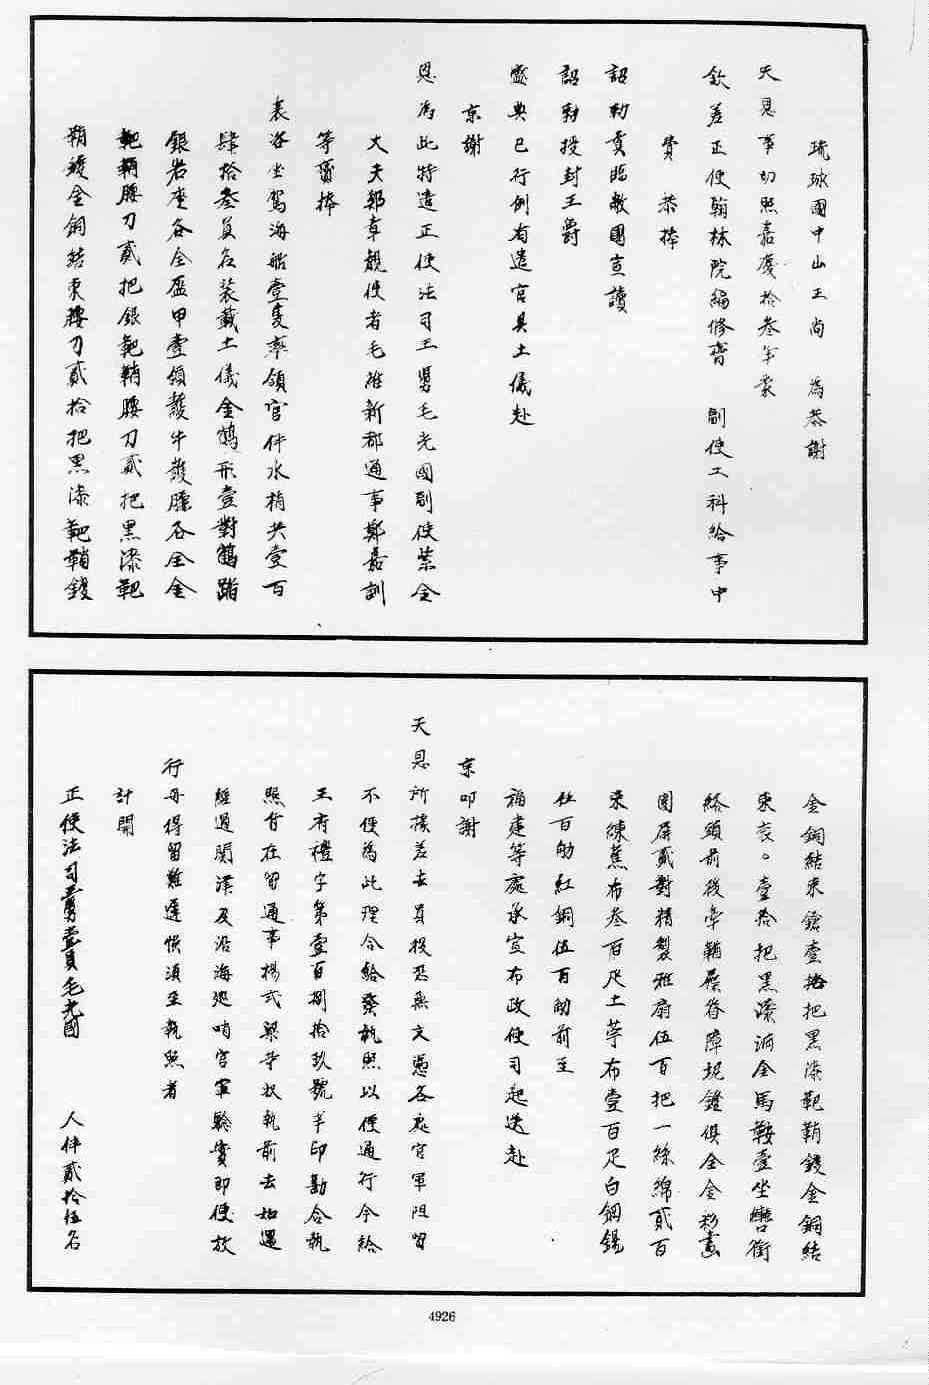 琉球國中山王尚　為恭謝
天恩事切照嘉慶拾叁年蒙
欽差正使翰林院編修齊　副使工科給事中
費　恭捧
詔勅賁臨敝國宣讀
詔勅授封王爵
盛典已行例有遣官具土儀赴
京謝
恩為此特遣正使法司王舅毛光國副使紫金
大夫鄭章觀使者毛維新都通事鄭嘉訓
等賫捧
表咨坐駕海船壹隻率領官伴水梢共壹百
肆拾叁員名裝載土儀金鶴形壹對鶴踏
銀岩座各全盔甲壹領護手護臁各全金
靶鞘腰刀貳把銀靶鞘腰刀貳把黑漆靶
鞘鍍金銅結束腰刀貳拾把黑漆靶鞘鍍
金銅結束鎗壹拾把黑漆靶鞘鍍金銅結
束袞刀壹拾把黑漆洒金馬鞍壹坐轡銜
絡頭前後牽鞦屜脊障坭鐙俱全金彩畫
圍屏貳對精製雅扇伍百把一絲綿貳百
束練蕉布叁百疋土苧布壹百疋白鋼錫
伍百觔紅銅伍百觔前至
福建等處承宣布政使司起送赴
京叩謝
天恩所據差去員役恐無文憑各處官軍阻留
不便為此理合給發執照以便通行今給
王府禮字第壹百捌拾玖號半印勘合執
照付在留通事楊式梁等收執前去如遇
經過關津及沿海巡哨官軍驗實即便放
行毋得留難遲悞須至執照者
計開
正使法司王舅壹員毛光國　人伴貳拾伍名
4926